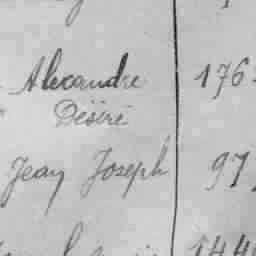 Alexandre 176
Désiré
Jean Joseph 97
144